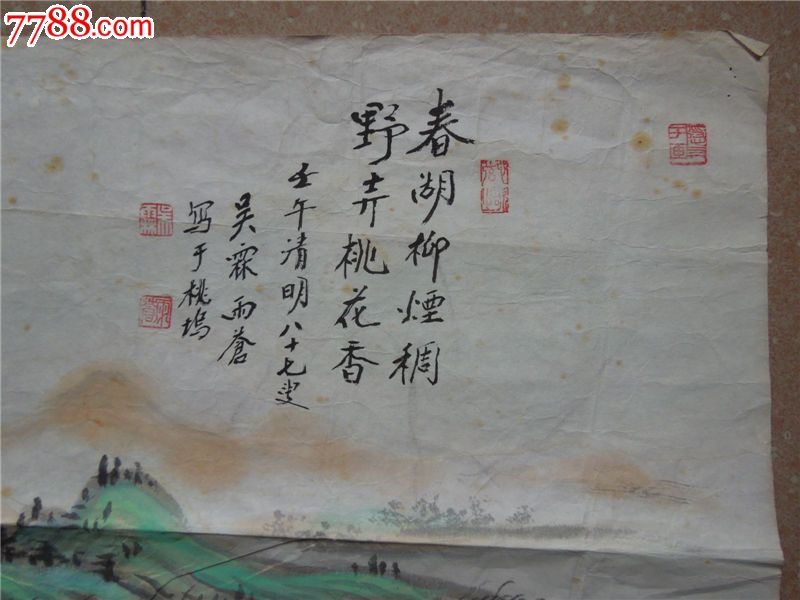 7788.com
春湖柳煙稠
野弄桃花香
壬午清明八十七叟
吴霖雨蒼
写于桃塢